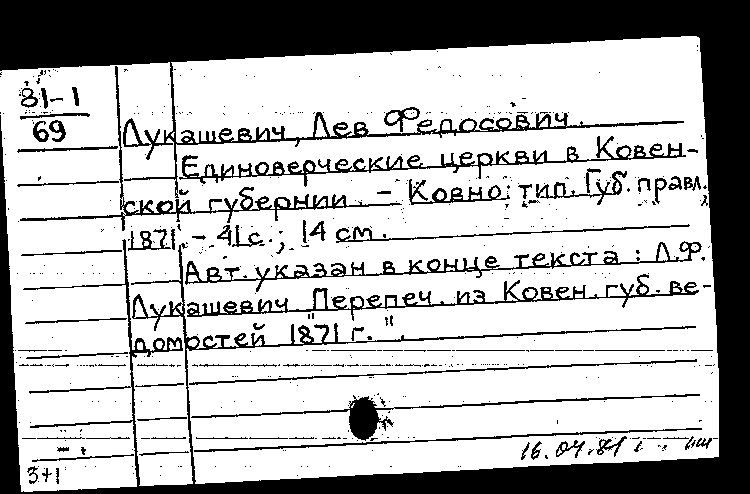 81-1
69
Лукашевич, Лев Федосович.
Единоверческие церкви в Ковен-
ской губернии. - Ковно: тип. Губ. правл.,
1871. - 41 с.; 14 см.
Авт. указан в конце текста: Л.Ф.
Лукашевич "Перепеч. из Ковен. губ. ве-
домостей 1871 г.".
16.04.81
3+1